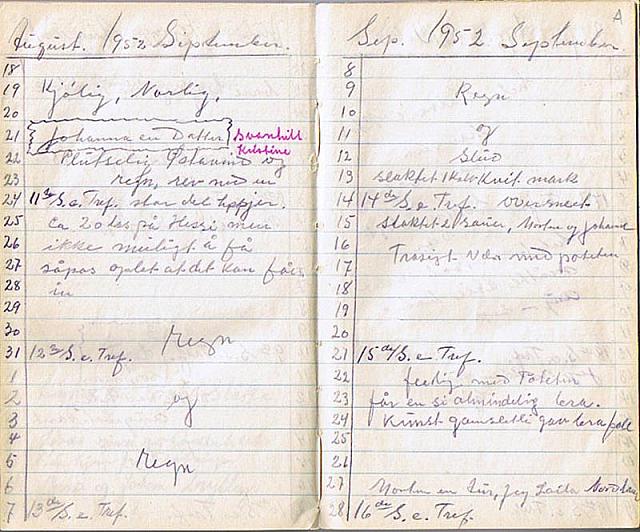 August. 1952 September.
18
19 Kjölig, Nordlig,
20
21 Johanna en Datter Svanhill
Kristine
22 Plutselig Östavind og
23 regn, rev ned en
24 11te/S. e. Tref. stor del hesjer.
25 Ca 20 lass på Hesje men
26 ikke muligt å få
27 såpas oplet at det kan fåes
28 in
29
30 Regn
31 12te/S. e. Tref.
1
2 og
3
4
5 Regn
6
7 13de/S. e. Tref.
A
Sep. 1952 September.
8
9 Regn
10
11 og
12 Slud
13 slaktet 1 kalv Kvit mark
14 14de/S. e. Tref. oversneet
15 slaktet 2 sauer, Morten og Johanna
16
17 Trasigt Vær med poteten
18
19
20
21 15de/S. e. Tref.
22 ferdig med Poteten
23 får en si almindelig bra.
24 Kunst gjödsel gav bra
25
26
27 Morten en tur, Jeg Laila
28 16de/S. e. Tref.